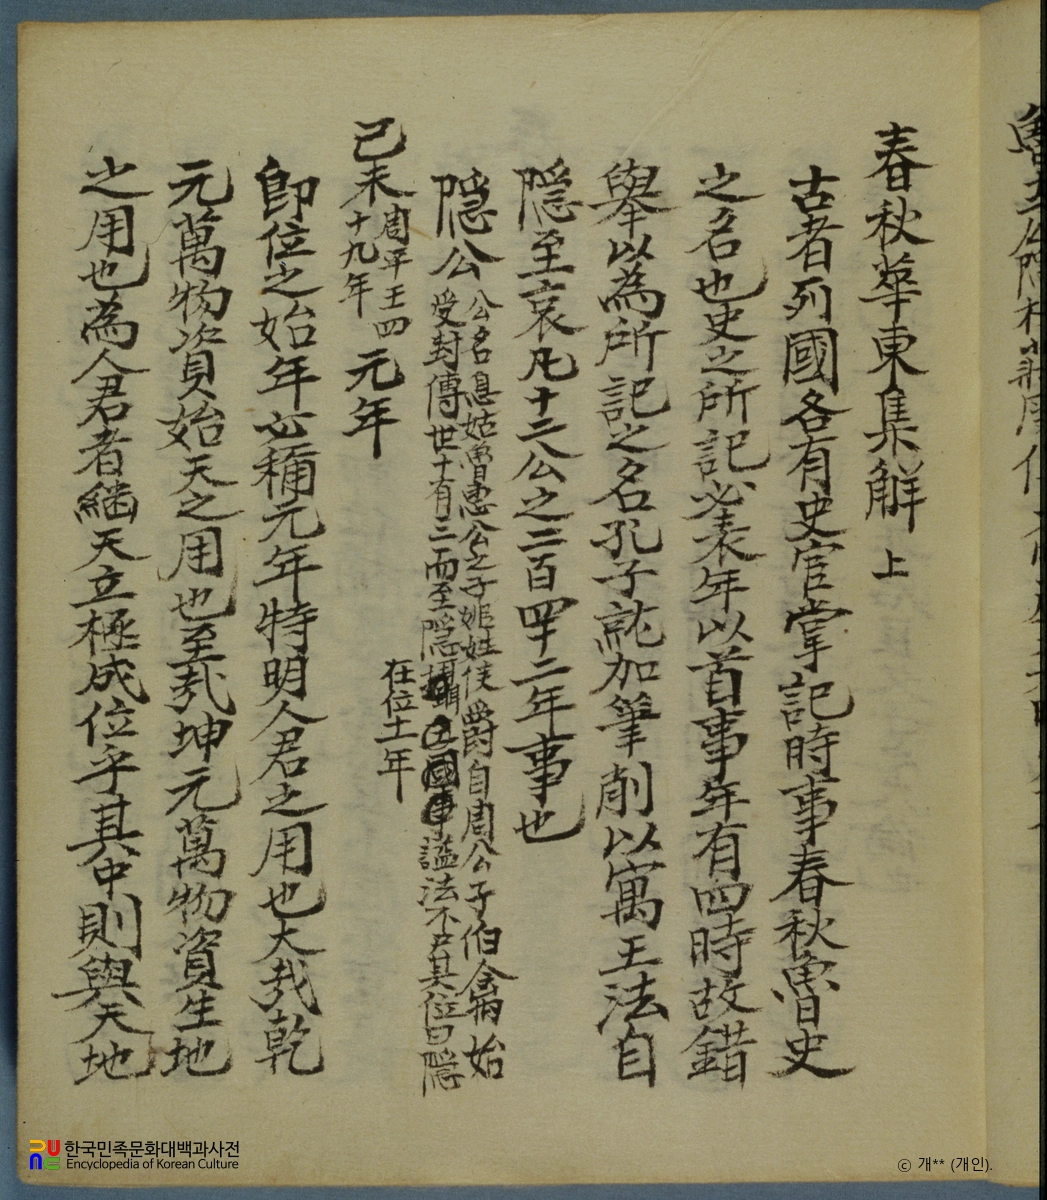 春秋華東集解 上
古者列國各有史官掌記時事春秋魯史
之名也史之所記必表年以首事年有四時故錯
舉以為所記之名孔子就加筆削以寓王法自
隱至哀凡十二公之二百四十二年事也
隱公 公名息姑魯惠公之子姬姓侯爵自周公子伯禽始
受封傳世十有三而至隱 諡法不尸其位曰隱
在位十一年
己未 周平王四
十九年 元年
即位之始年必稱元年特明人君之用也大哉乾
元萬物資始天之用也至哉坤元萬物資生地
之用也為人君者繼天立極成位乎其中則與天地
한국민족문화대백과사전
Encyclopedia of Korean Culture
ⓒ 개** (개인).